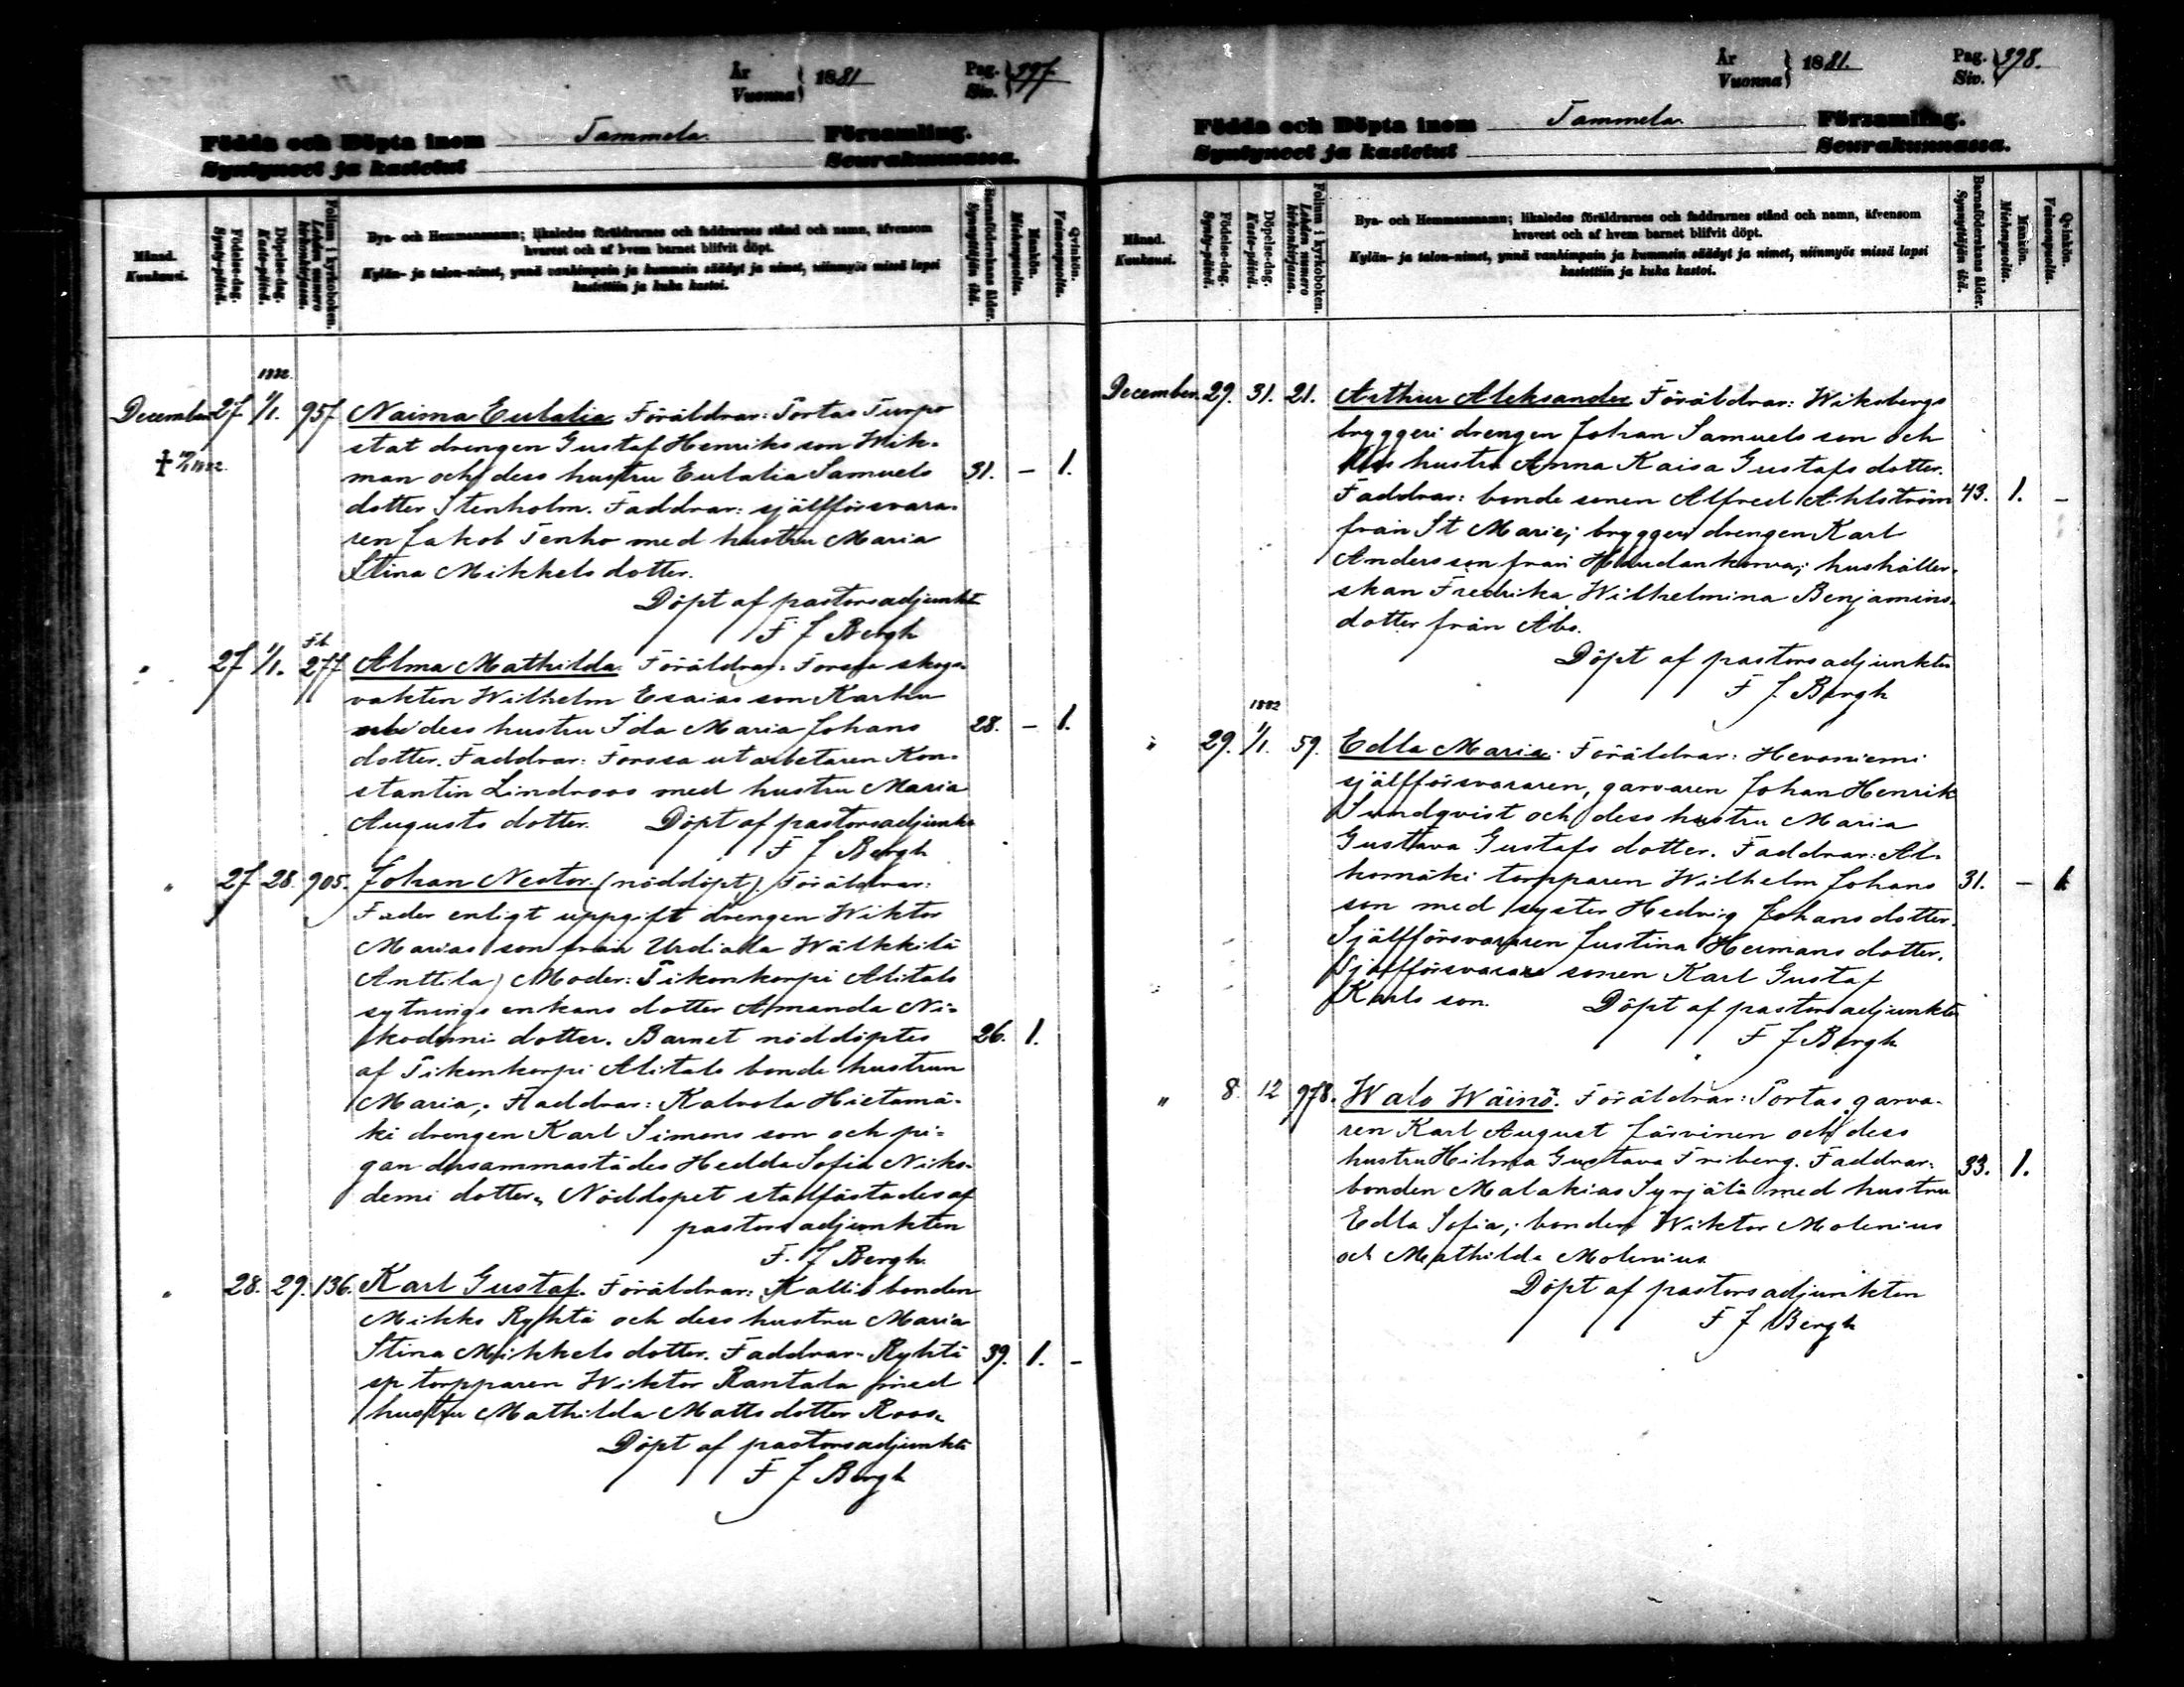 År
Vuonna } 1881
Pag.
Siv. } 397
Födda och Döpta inom Tammela Församling.
Syntyneet ja kastetut Seurakunnassa.
Månad.
Kuukausi.
Födelse-dag.
Synty-päivä.
Döpelse-dag.
Kaste-päivä.
Folium i kyrkoboken.
Lehden numero kirkonkirjassa.
Bya- och Hemmansnamn; likaledes föräldrarnes och faddrarnes stånd och namn, äfvensom
hvarest och af hvem barnet blifvit döpt.
Kylän- ja talon-nimet, ynnä vanhimpain ja kummein säädyt ja nimet, niinmyös missä lapsi
kastettiin ja kuka kastoi.
Barnaföderskans ålder.
Synnyttäjän ikä.
Mankön.
Miehenpuolia.
Qvinkön.
Vaimonpuolia.
1882.
December 27 1/1. 957 Naima Eulalia Föräldrar: Portas Turpo
stat drengen Gustaf Henriks son Wik-
man och dess hustru Eulalia Samuels 31. – 1.
dotter Stenholm. Faddrar: sjelfförsvara-
ren Jakob Tenho med hustru Maria
Stina Mikkels dotter.
Döpt af pastorsadjunkt
F J Bergh
" 27 1/1. Fb. 277 Alma Mathilda Föräldrar: Forssa skogs-
vakten Wilhelm Esaias son Karhu
och dess hustru Ida Maria Johans 28. – 1.
dotter. Faddrar: Forssa utarbetaren Kon-
stantin Lindroos med hustru Maria
Augusts dotter. Döpt af pastorsadjunkt
F J Bergh
" 27 28. 905. Johan Nestor. (nöddöpt). Föräldrar:
Fader enligt uppgift drengen Wiktor
Marias son från Urdiala Wälkkilä
Anttila) Moder: Tikonkorpi Alitalo
sytnings enkans dotter Amanda Ni-
kodemi dotter. Barnet nöddöptes 26. 1.
af Tikonkorpi Alitalo bonde hustrun
Maria,. Faddrar: Kalvola Hietamä-
ki drengen Karl Simons son och pi-
gan dersammastädes Hedda Sofia Niko-
demi dotter. Nöddopet stadfästades af
pastorsadjunkten
F. J Bergh
" 28. 29. 136. Karl Gustaf. Föräldrar: Kallio bonden
Mikko Ryhtä och dess hustru Maria
Stina Mikkels dotter. Faddrar: Ryhtä 39. 1. –
sp torpparen Wiktor Rantala med
hustru Mathilda Matts dotter Roos.
Döpt af pastorsadjunkt
F J Bergh
År
Vuonna } 1881.
Pag.
Siv. } 398.
Födda och Döpta inom Tammela Församling.
Syntyneet ja kastetut Seurakunnassa.
Månad.
Kuukausi.
Födelse-dag.
Synty-päivä.
Döpelse-dag.
Kaste-päivä.
Folium i kyrkoboken.
Lehden numero kirkonkirjassa.
Bya- och Hemmansnamn; likaledes föräldrarnes och faddrarnes stånd och namn, äfvensom
hvarest och af hvem barnet blifvit döpt.
Kylän- ja talon-nimet, ynnä vanhimpain ja kummein säädyt ja nimet, niinmyös missä lapsi
kastettiin ja kuka kastoi.
Barnaföderskans ålder.
Synnyttäjän ikä.
Mankön.
Miehenpuolia.
Qvinkön.
Vaimonpuolia.
December. 29. 31. 21. Arthur Aleksander Föräldrar: Wiksbergs
bryggeri drengen Johan Samuels son och
dess hustru Anna Kaisa Gustafs dotter.
Faddrar: bonde sonen Alfred Ahlström 43. 1. –
från St Marie; bryggeri drengen Karl
Andersson från; hushåller-
skan Fredrika Wilhelmina Benjamins-
dotter från Åbo.
Döpt af pastors adjunkten
F J Bergh
1882
" 29. 1/1. 59. Edla Maria. Föräldrar: Hevoniemi
sjelfförsvararen, garvaren Johan Henrik
Sundqvist och dess hustru Maria
Gustava Gustafs dotter. Faddrar: Al-
homäki torpparen Wilhelm Johans 31. – 1.
son med syster Hedvig Johans dotter.
Sjelfförsvararen Justina Hermans dotter.
Sjelfförsvarare sonen Karl Gustaf
Karls son. Döpt af pastors adjunkten
F J Bergh
" 8. 12 978. Walo Wäinö. Föräldrar: Portas garva-
ren Karl August Järvinen och dess
hustru Hilma Gustava Friberg. Faddrar: 33. 1.
bonden Malakias Syrjälä med hustru
Edla Sofia; bonden Wiktor Molenius
och Mathilda Molenius
Döpt af pastors adjunkten
F J Bergh